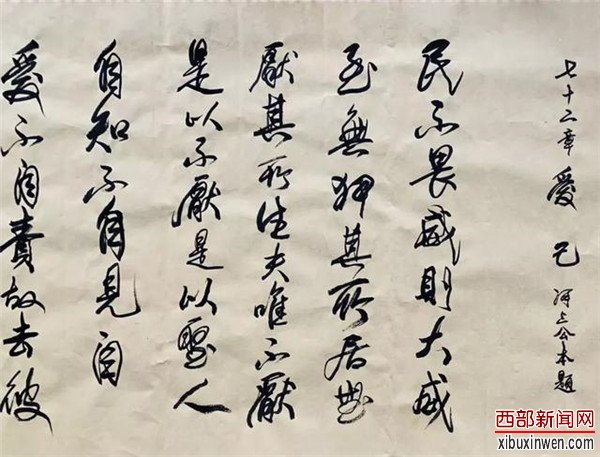 七十二章 愛己 河上公本題
民不畏威則大威
至無狎其所居無
厭其所生夫唯不厭
是以不厭是以聖人
自知不自見自
愛不自貴故去彼
西部新闻网
xibuxinwen.com